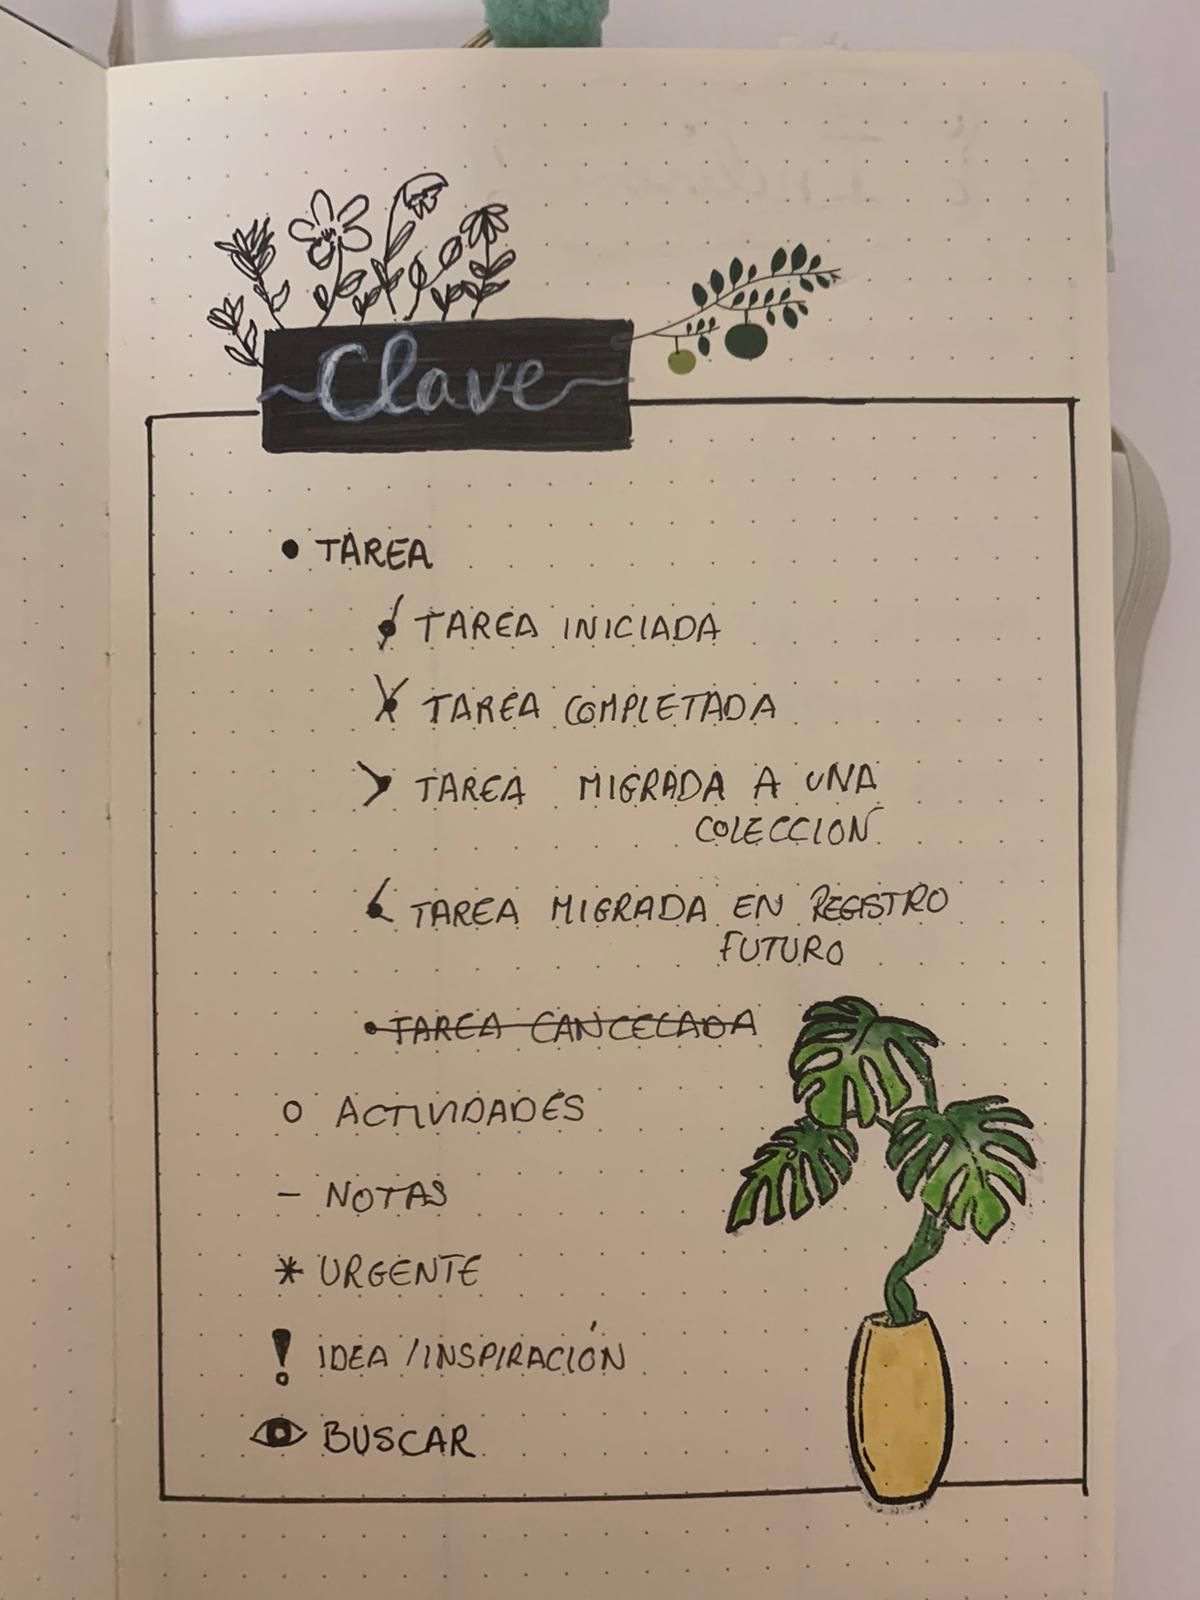 Clave
• TAREA
TAREA INICIADA
X TAREA COMPLETADA
> TAREA MIGRADA A UNA
COLECCIÓN
< TAREA MIGRADA EN REGISTRO
FUTURO
• TAREA CANCELADA
O ACTIVIDADES
- NOTAS
* URGENTE
! IDEA / INSPIRACIÓN
BUSCAR